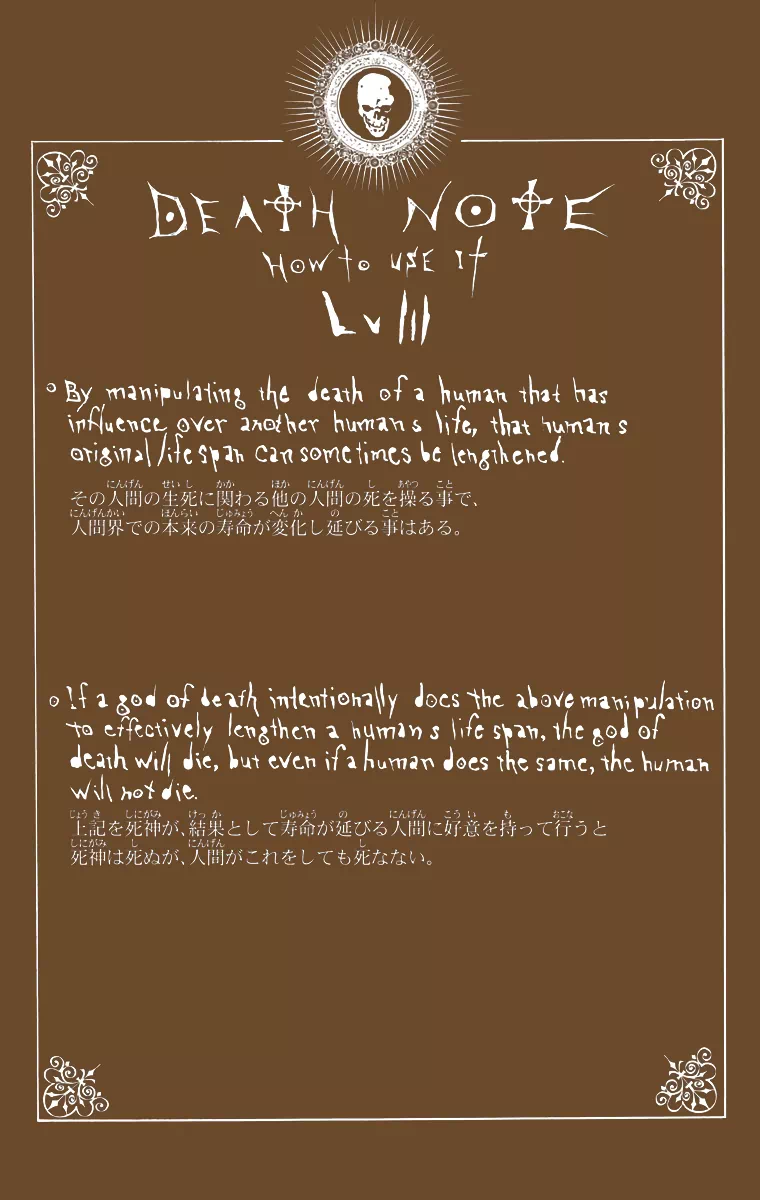 DEATH NOTE
HOW to USE It
LVIII
By manipulating the death of a human that has
influence over another human's life, that human's
original life span can sometimes be lengthened.
その人間の生死に関わる他の人間の死を操る事で、
人間界での本来の寿命が変化し延びる事はある。
If a god of death intentionally does the above manipulation
to effectively lengthen a human's life span, the god of
death will die, but even if a human does the same, the human
will not die.
上記を死神が、結果として寿命が延びる人間に好意を持って行うと
死神は死ぬが、人間がこれをしても死なない。